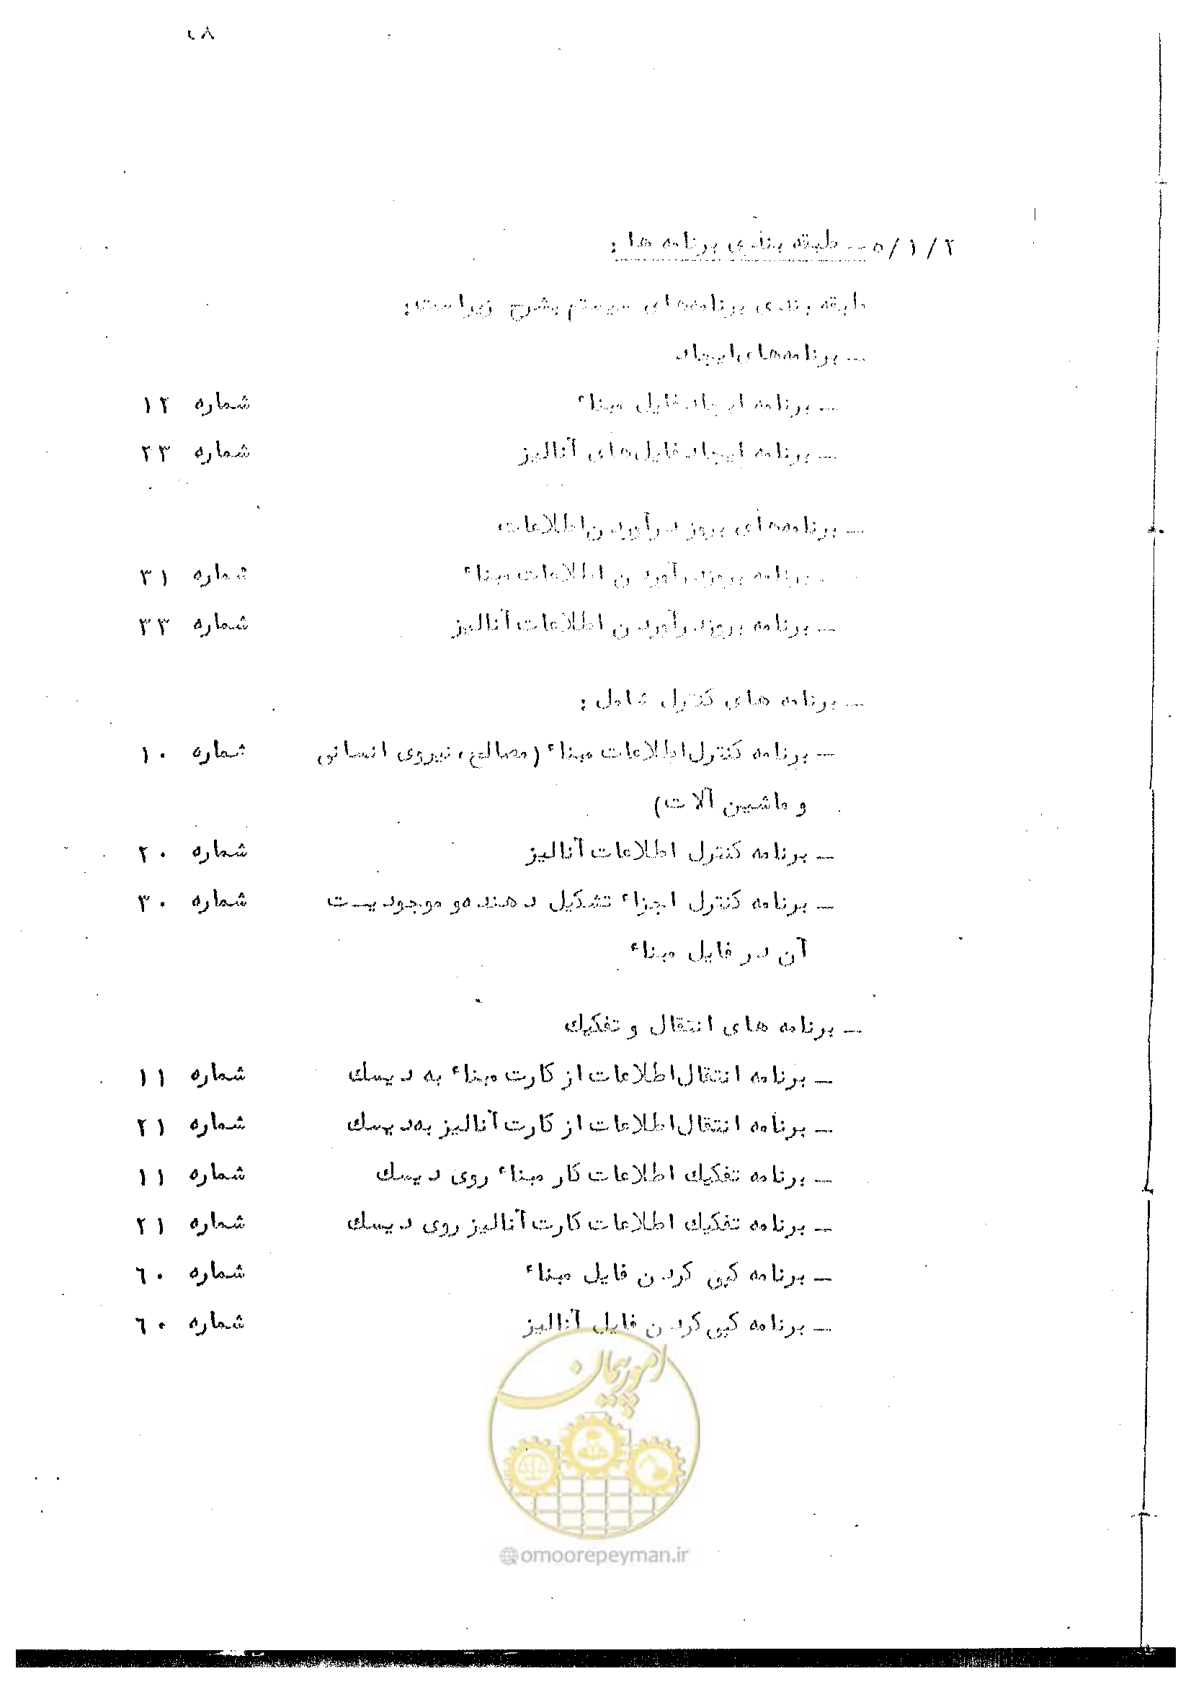 ۵/۱/۲ – طبقه بندی برنامه ها :
طبقه بندی برنامه‌های سیستم بشرح زیراست:
– برنامه‌های ایجاد
– برنامه ایجاد فایل مبناء شماره ۱۲
– برنامه ایجاد فایل‌های آنالیز شماره ۲۳
– برنامه‌های بروز درآوردن اطلاعات
– برنامه بروز درآوردن اطلاعات مبناء شماره ۳۱
– برنامه بروز درآوردن اطلاعات آنالیز شماره ۳۳
– برنامه های کنترل شامل :
– برنامه کنترل اطلاعات مبناء (مصالح، نیروی انسانی شماره ۱۰
و ماشین آلات)
– برنامه کنترل اطلاعات آنالیز شماره ۲۰
– برنامه کنترل اجزاء تشکیل دهنده و موجودیت شماره ۳۰
آن در فایل مبناء
– برنامه های انتقال و تفکیک
– برنامه انتقال اطلاعات از کارت مبناء به دیسک شماره ۱۱
– برنامه انتقال اطلاعات از کارت آنالیز به دیسک شماره ۲۱
– برنامه تفکیک اطلاعات کار مبناء روی دیسک شماره ۱۱
– برنامه تفکیک اطلاعات کارت آنالیز روی دیسک شماره ۲۱
– برنامه کپی کردن فایل مبناء شماره ۶۰
– برنامه کپی کردن فایل آنالیز شماره ۶۰
امور پیمان
@omoorepeyman.ir